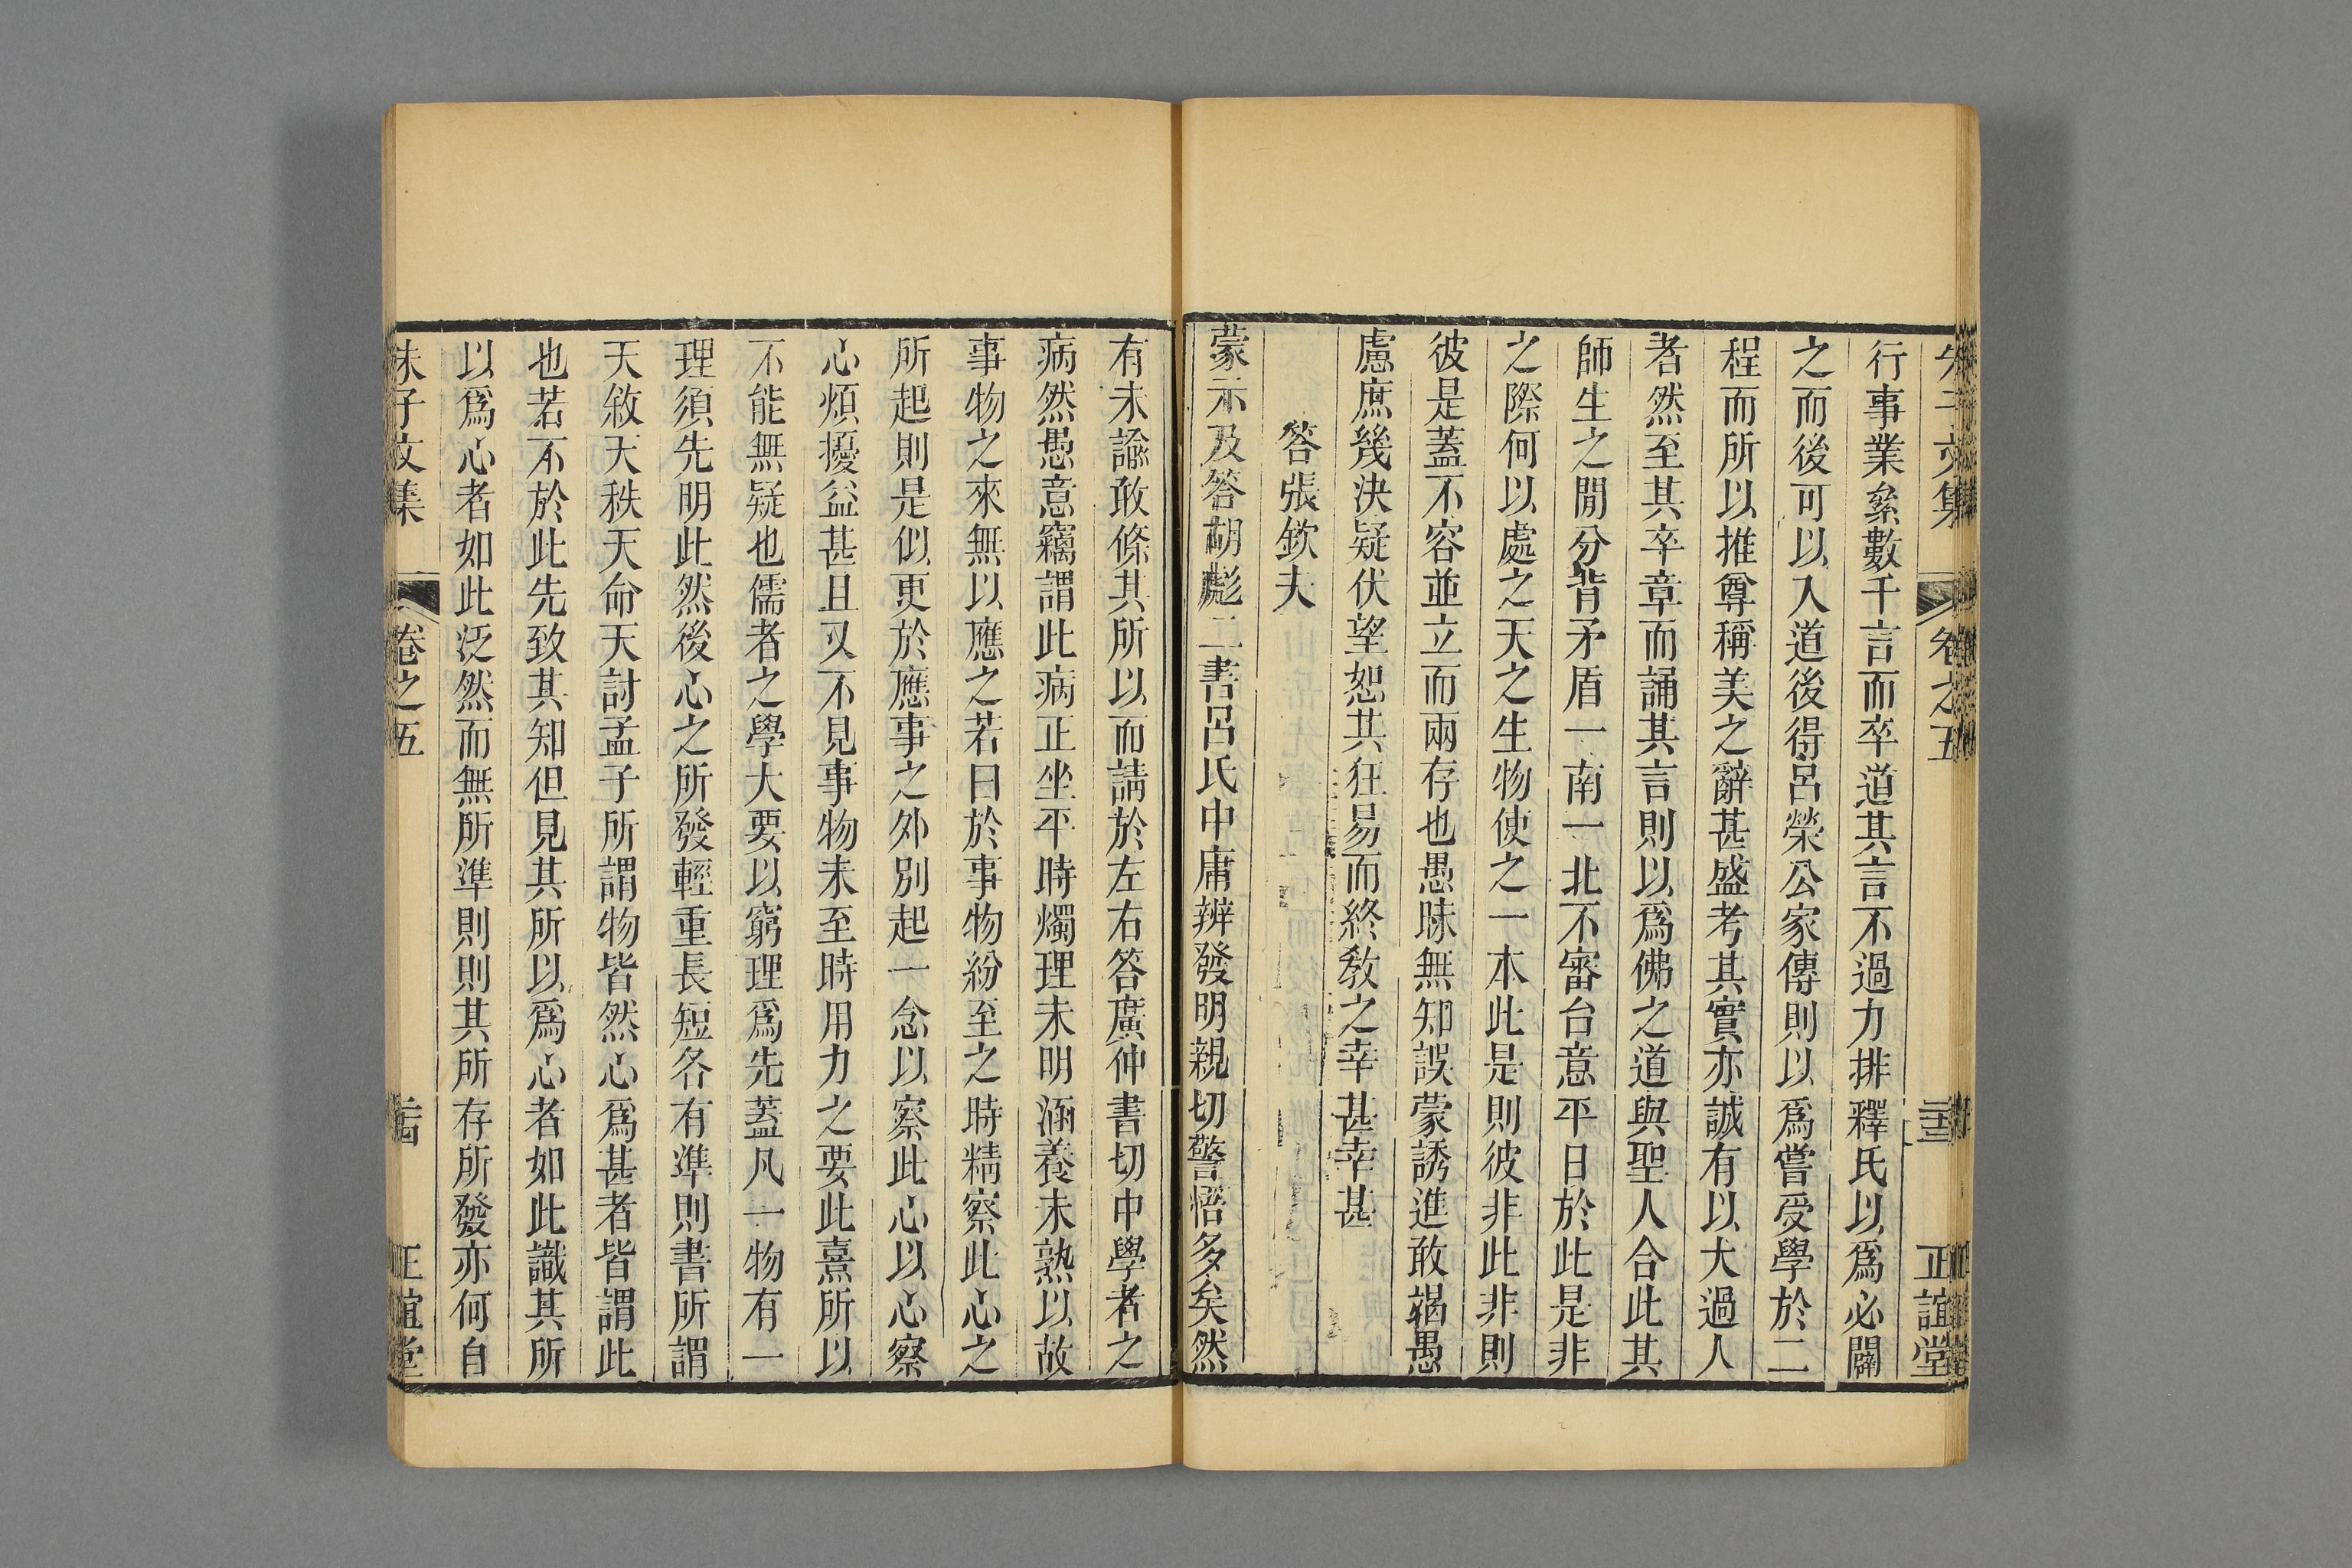 朱子文集 卷之五 二十三 正誼堂
行事業絫數千言而卒道其言不過力排釋氏以爲必闢
之而後可以入道後得呂榮公家傳則以爲嘗受學於二
程而所以推尊稱美之辭甚盛考其實亦誠有以大過人
者然至其卒章而誦其言則以爲佛之道與聖人合此其
師生之閒分背矛盾一南一北不審台意平日於此是非
之際何以處之天之生物使之一本此是則彼非此非則
彼是蓋不容並立而兩存也愚昧無知誤蒙誘進敢竭愚
慮庶幾決疑伏望恕其狂易而終敎之幸甚幸甚
答張欽夫
蒙示及答胡彪二書呂氏中庸辨發明親切警悟多矣然
有未諭敢條其所以而請於左右答廣仲書切中學者之
病然愚意竊謂此病正坐平時燭理未明涵養未熟以故
事物之來無以應之若曰於事物紛至之時精察此心之
所起則是似更於應事之外別起一念以察此心以心察
心煩擾益甚且又不見事物未至時用力之要此熹所以
不能無疑也儒者之學大要以窮理爲先蓋凡一物有一
理須先明此然後心之所發輕重長短各有準則書所謂
天敘天秩天命天討孟子所謂物皆然心爲甚者皆謂此
也若不於此先致其知但見其所以爲心者如此識其所
以爲心者如此泛然而無所準則則其所存所發亦何自
朱子文集 卷之五 二十四 正誼堂